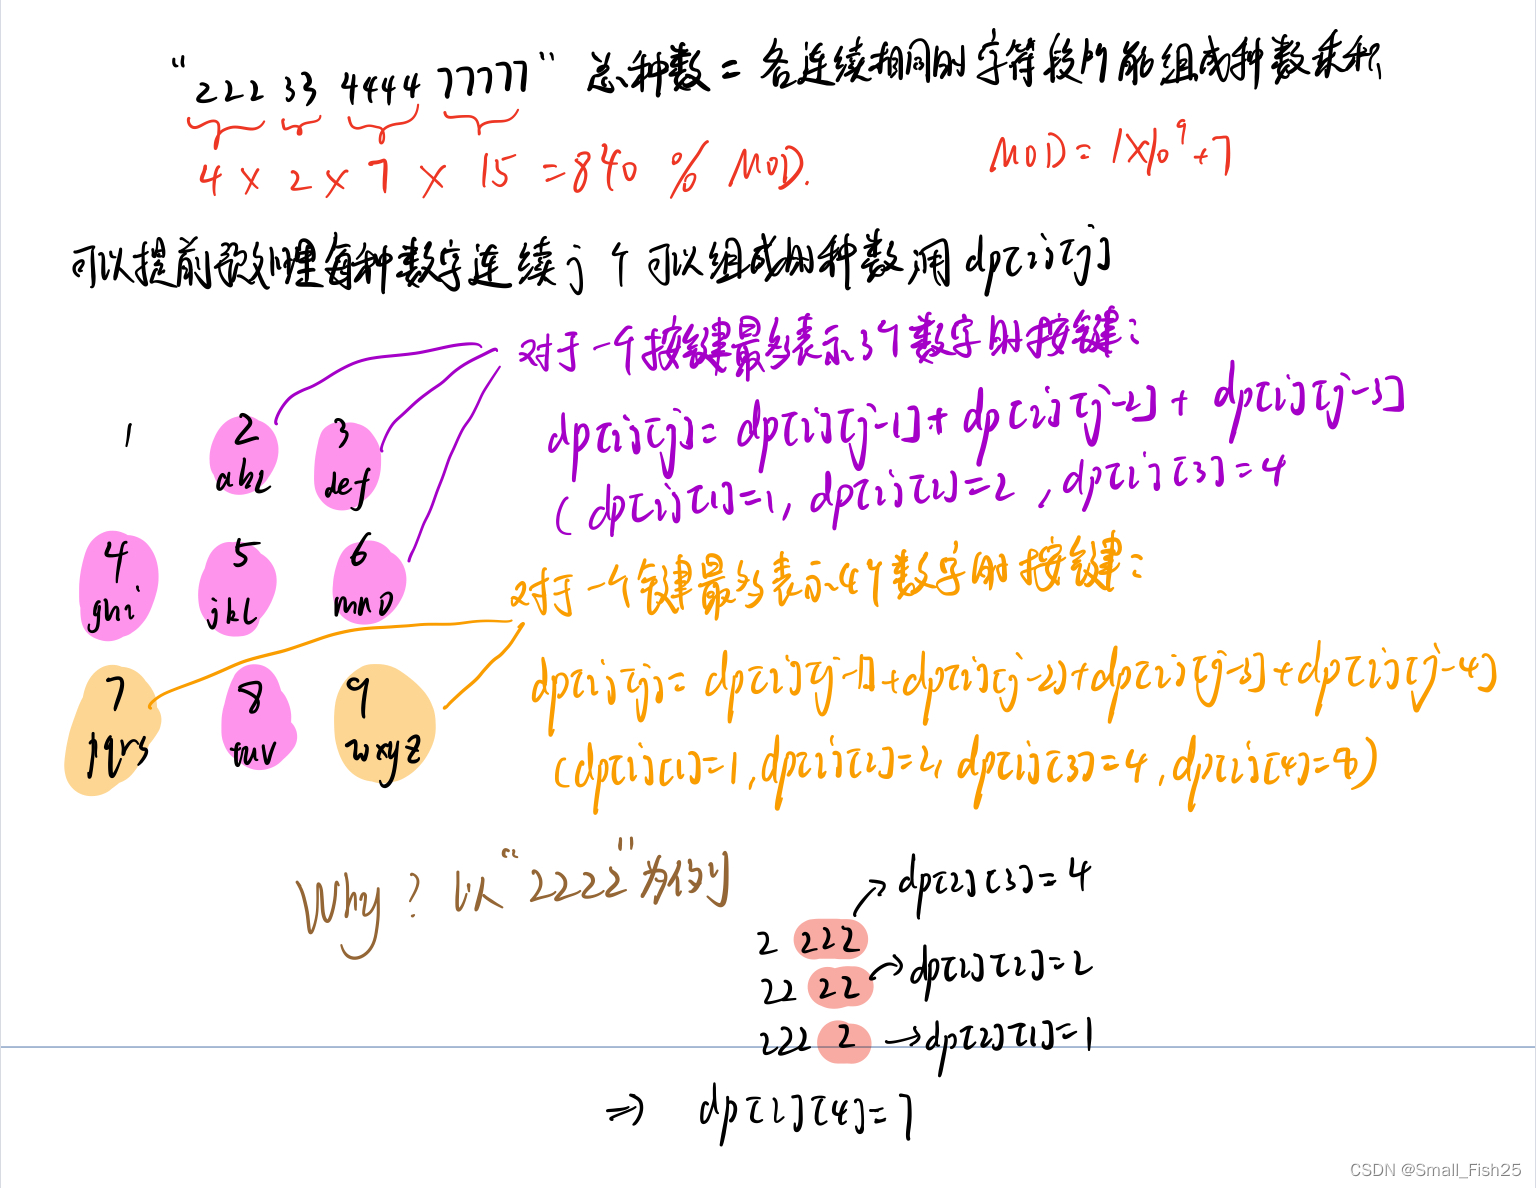 “222 33 4444 77777” 总种数 = 各连续相同的字符段所能组成种数乘积
4 × 2 × 7 × 15 = 840 % MOD.
MOD = 1×10^9+7
可以提前预处理每种数字连续j个可以组成的种数,用dp[i][j]
对于一个按键最多表示3个数字的按键:
dp[i][j] = dp[i][j-1] + dp[i][j-2] + dp[i][j-3]
(dp[i][1]=1, dp[i][2]=2, dp[i][3]=4
1 2 3
abc def
4 5 6
ghi jkl mno
对于一个键最多表示4个数字的按键:
dp[i][j] = dp[i][j-1]+dp[i][j-2]+dp[i][j-3]+dp[i][j-4]
(dp[i][1]=1, dp[i][2]=2, dp[i][3]=4, dp[i][4]=8)
7 8 9
pqrs tuv wxyz
Why? 以“2222”为例
2 222 → dp[2][3]=4
22 22 → dp[2][2]=2
222 2 → dp[2][1]=1
⇒ dp[2][4]=7
CSDN @Small_Fish25